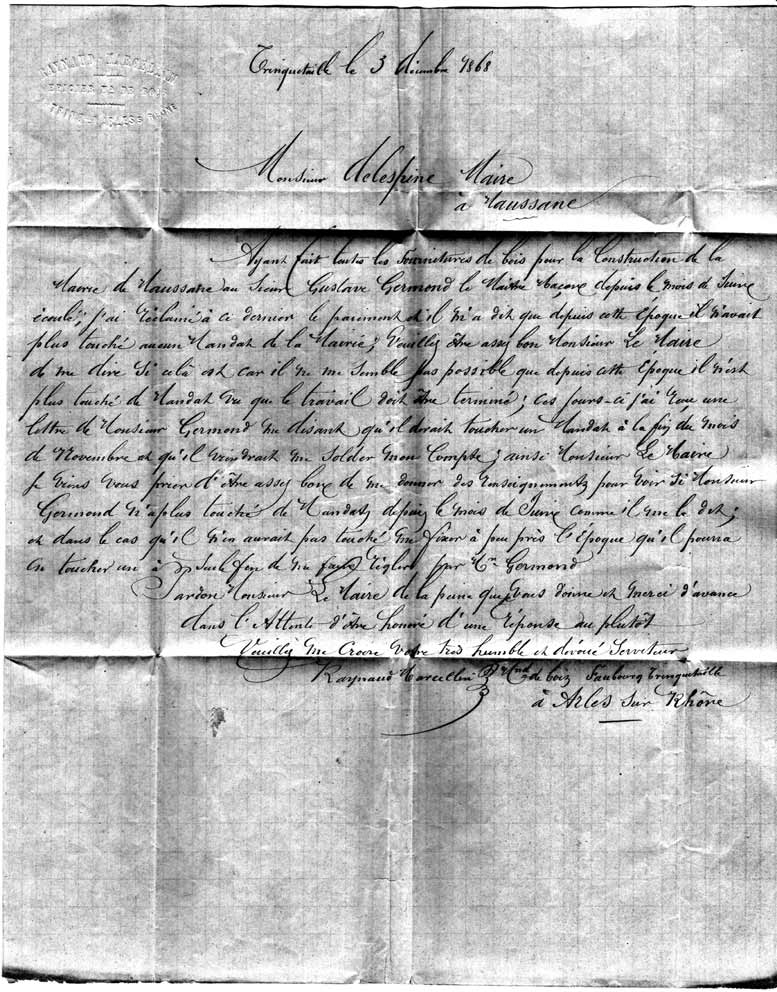 RAYNAUD MARCELLIN
EPICIER ET DE BOIS
Trinquetaille le 3 décembre 1868
Monsieur Delespine Maire
à Maussane
Ayant fait toutes les Fournitures de bois pour la Construction de la
Mairie de Maussane au Sieur Gustave Germond le Maitre Maçon depuis le mois de Juin
écoulé, j'ai réclamé à ce dernier le paiement et il m'a dit que depuis cette Epoque il n'avait
plus touché aucun Mandat de la Mairie; Veuillez être assez bon Monsieur Le Maire
de me dire Si celà est car il ne me Semble pas possible que depuis cette Epoque il n'est
plus touché de Mandat vu que le travail doit être terminé; ces jours-ci j'ai reçu une
lettre de Monsieur Germond me disant qu'il devait toucher un Mandat à la fin du mois
de Novembre et qu'il viendrait me Solder mon Compte; ainsi Monsieur Le Maire
je viens vous prier d'être assez bon de me donner des renseignements pour voir Si Monsieur
Germond n'a plus touché de Mandats depuis le mois de Juin comme il me le dit;
et dans le cas qu'il n'en aurait pas touché me fixer à peu près l'Epoque qu'il pourra
en toucher un à de me faire régler par Mr Germond
Pardon Monsieur Le Maire de la peine que vous donne et merci d'avance
dans l'Attente d'être honoré d'une réponse au plutôt
Veuillez me Croire Votre très humble et dévoué Serviteur
Raynaud Marcellin Mnd de bois Faubourg Trinquetaille
à Arles Sur Rhône